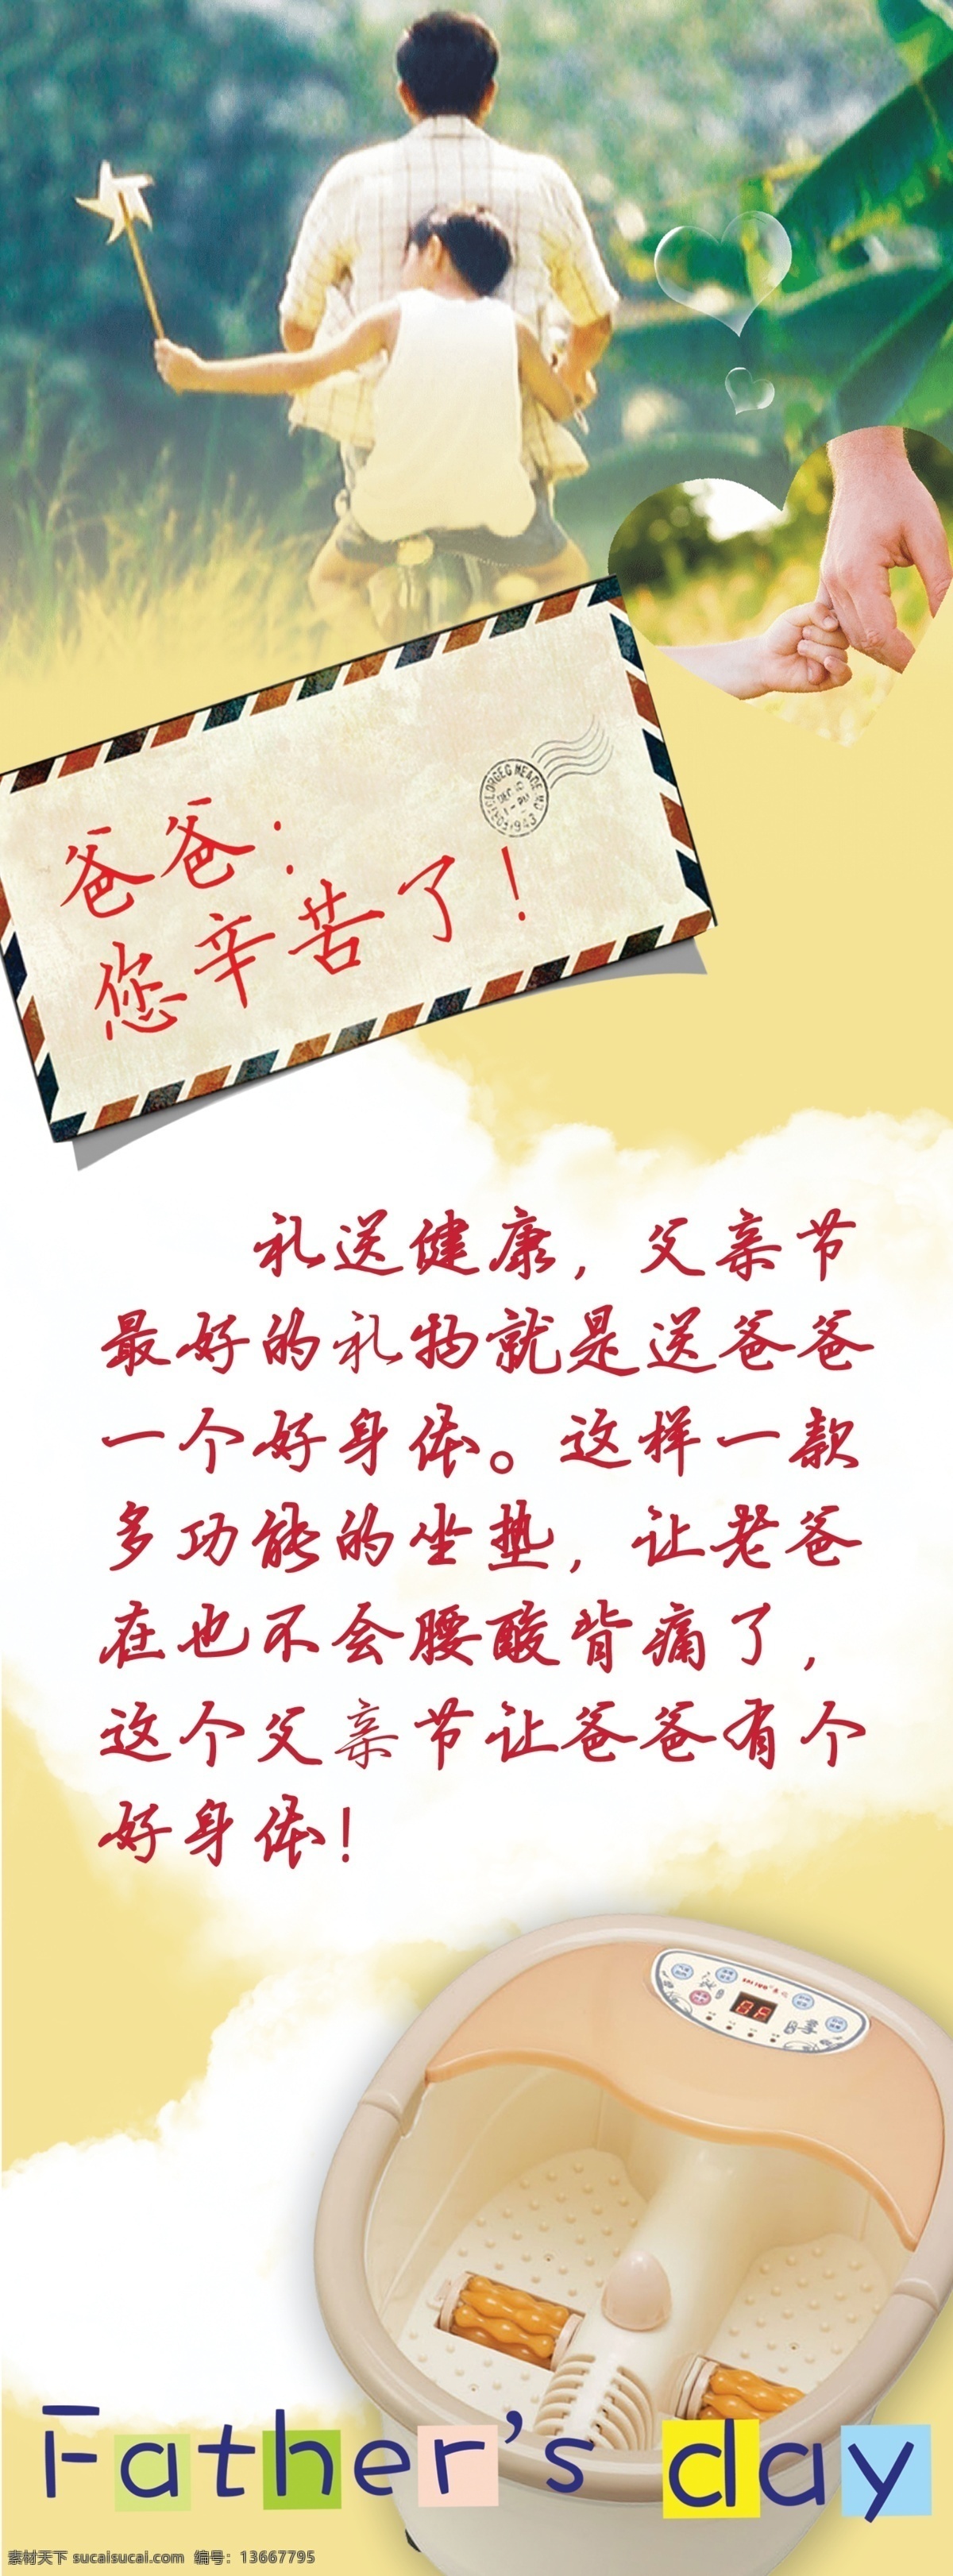 FORT GEORGE G MEADE MD
DEC 8
1 - PM
1943
爸爸：
您辛苦了！
礼送健康，父亲节
最好的礼物就是送爸爸
一个好身体。这样一款
多功能的坐垫，让老爸
在也不会腰酸背痛了，
这个父亲节让爸爸有个
好身体！
Father's day
素材天下 sucaisucai.com 编号：13667795